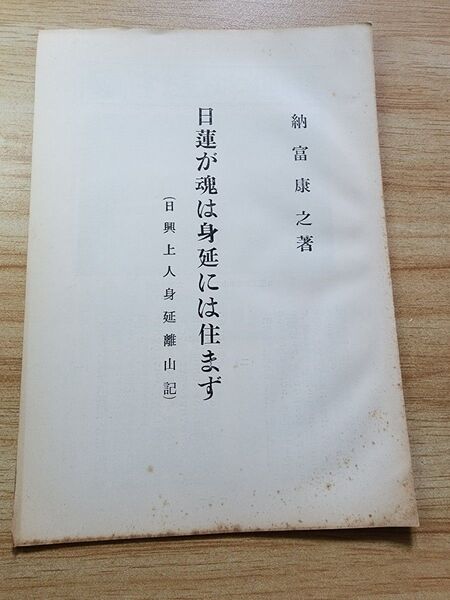 納富康之著
日蓮が魂は身延には住まず
(日興上人身延離山記)